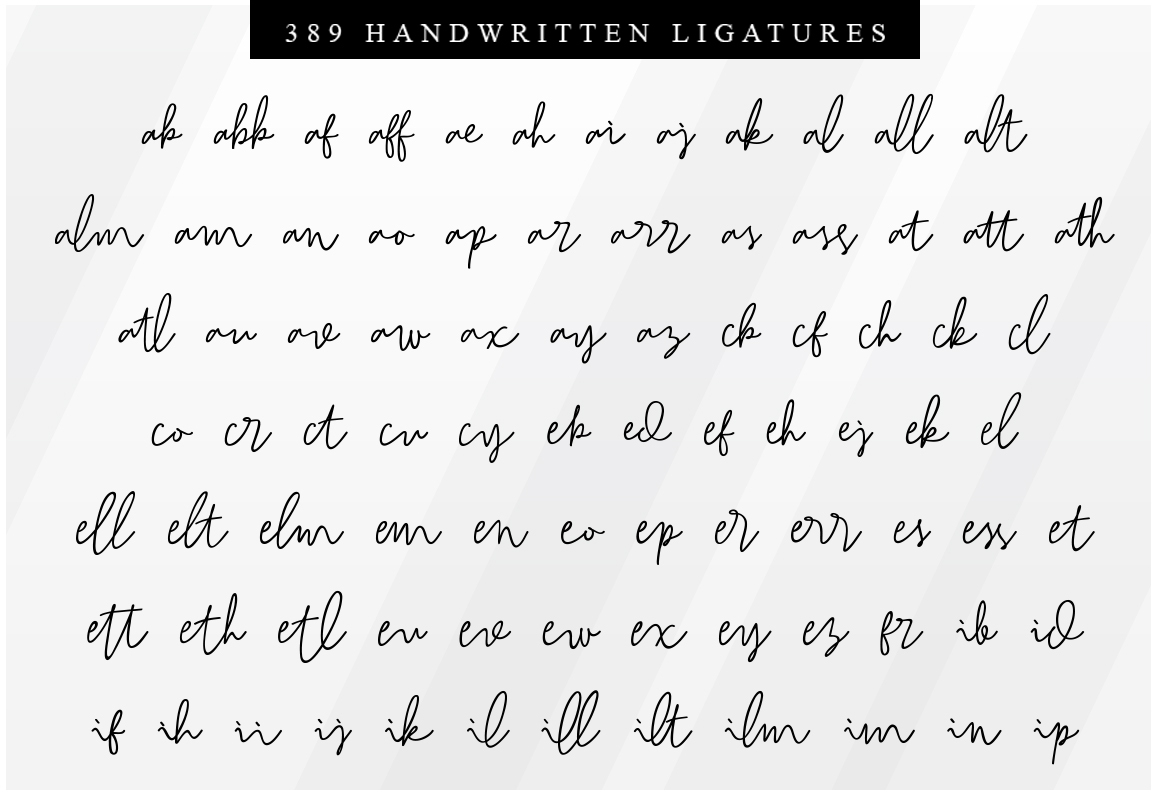 389 HANDWRITTEN LIGATURES
ab abb af aff ae ah ai aj ak al all alt
alm am an ao ap ar arr as ass at att ath
atl au av aw ax ay az cb cf ch ck cl
co cr ct cu cy eb ed ef eh ej ek el
ell elt elm em en eo ep er err es ess et
ett eth etl eu ev ew ex ey ez fr ib id
if ih ii ij ik il ill ilt ilm im in ip